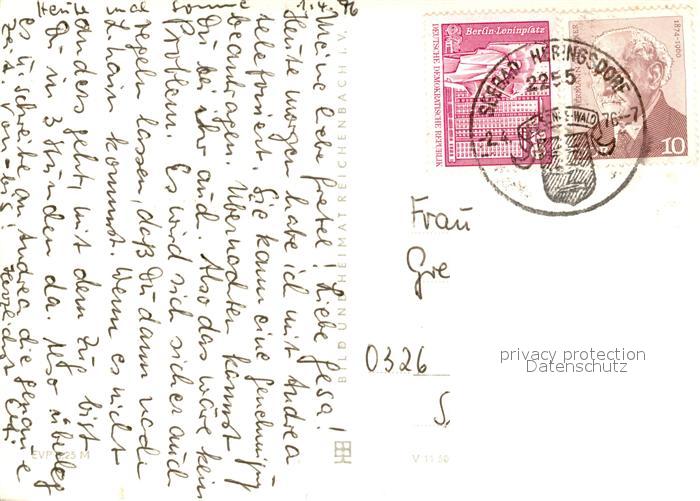 1.4.76
Meine liebe Gretel! Liebe Gesa!
Heute morgen habe ich mit Andrea
telefoniert. Sie kann eine Genehmigung
beantragen. Übernachten kannst
Du bei ihr auch. Also das wäre kein
Problem. Es wird sich sicher auch
so regeln lassen, daß Du dann nach
kommst. Wenn es nicht
anders geht, mit dem Zug bist
Du in 3 Stunden da. Also überleg
es u. schreibe an Andrea die genaue
Zeit von
Herzlichst
BILD UND HEIMAT REICHENBACH I. V.
EVP 0,25 M
V 11 50
Berlin-Leninplatz
DEUTSCHE DEMOKRATISCHE REPUBLIK
1874-1960
10
SEEBAD HERINGSDORF
2255
76-7
Frau
Gre
0326
S
privacy protection
Datenschutz